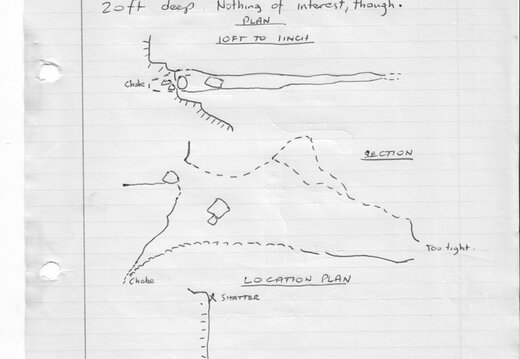 20ft deep. Nothing of interest, though.
PLAN
10FT TO 1INCH
Choke
SECTION
Too tight.
Choke
LOCATION PLAN
SHATTER